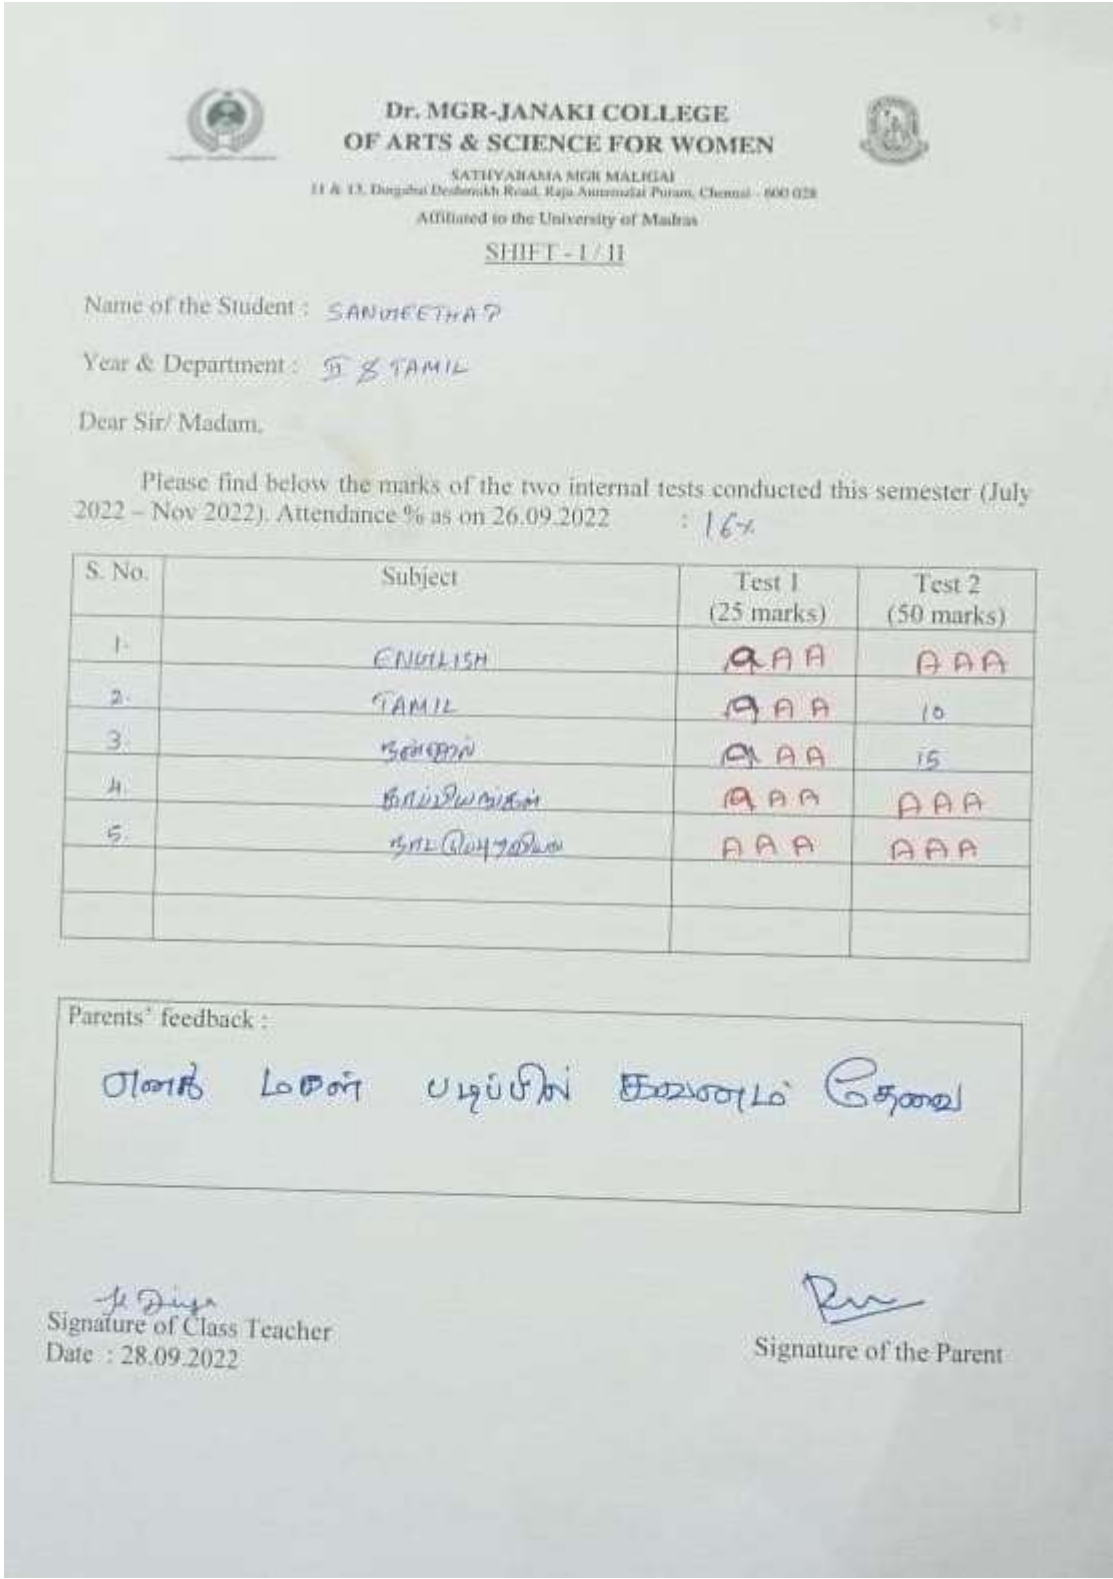 Dr. MGR-JANAKI COLLEGE
OF ARTS & SCIENCE FOR WOMEN
SATHYABAMA MGR MALIGAI
11 & 13, Durgabai Deshmukh Road, Raja Annamalai Puram, Chennai - 600 028
Affiliated to the University of Madras
SHIFT - I / II
Name of the Student : SANGEETHA P
Year & Department : II B TAMIL
Dear Sir/ Madam,
Please find below the marks of the two internal tests conducted this semester (July
2022 – Nov 2022). Attendance % as on 26.09.2022 : 16%
S. No. Subject Test 1 (25 marks) Test 2 (50 marks)
1. ENGLISH AAA AAA
2. TAMIL AAA 10
3. நன்னூல் AAA 15
4. காப்பியங்கள் AAA AAA
5. நாட்டுப்புறவியல் AAA AAA
Parents' feedback :
எனக் மகள் படிப்பில் கவனம் தேவை
Signature of Class Teacher
Date : 28.09.2022
Signature of the Parent